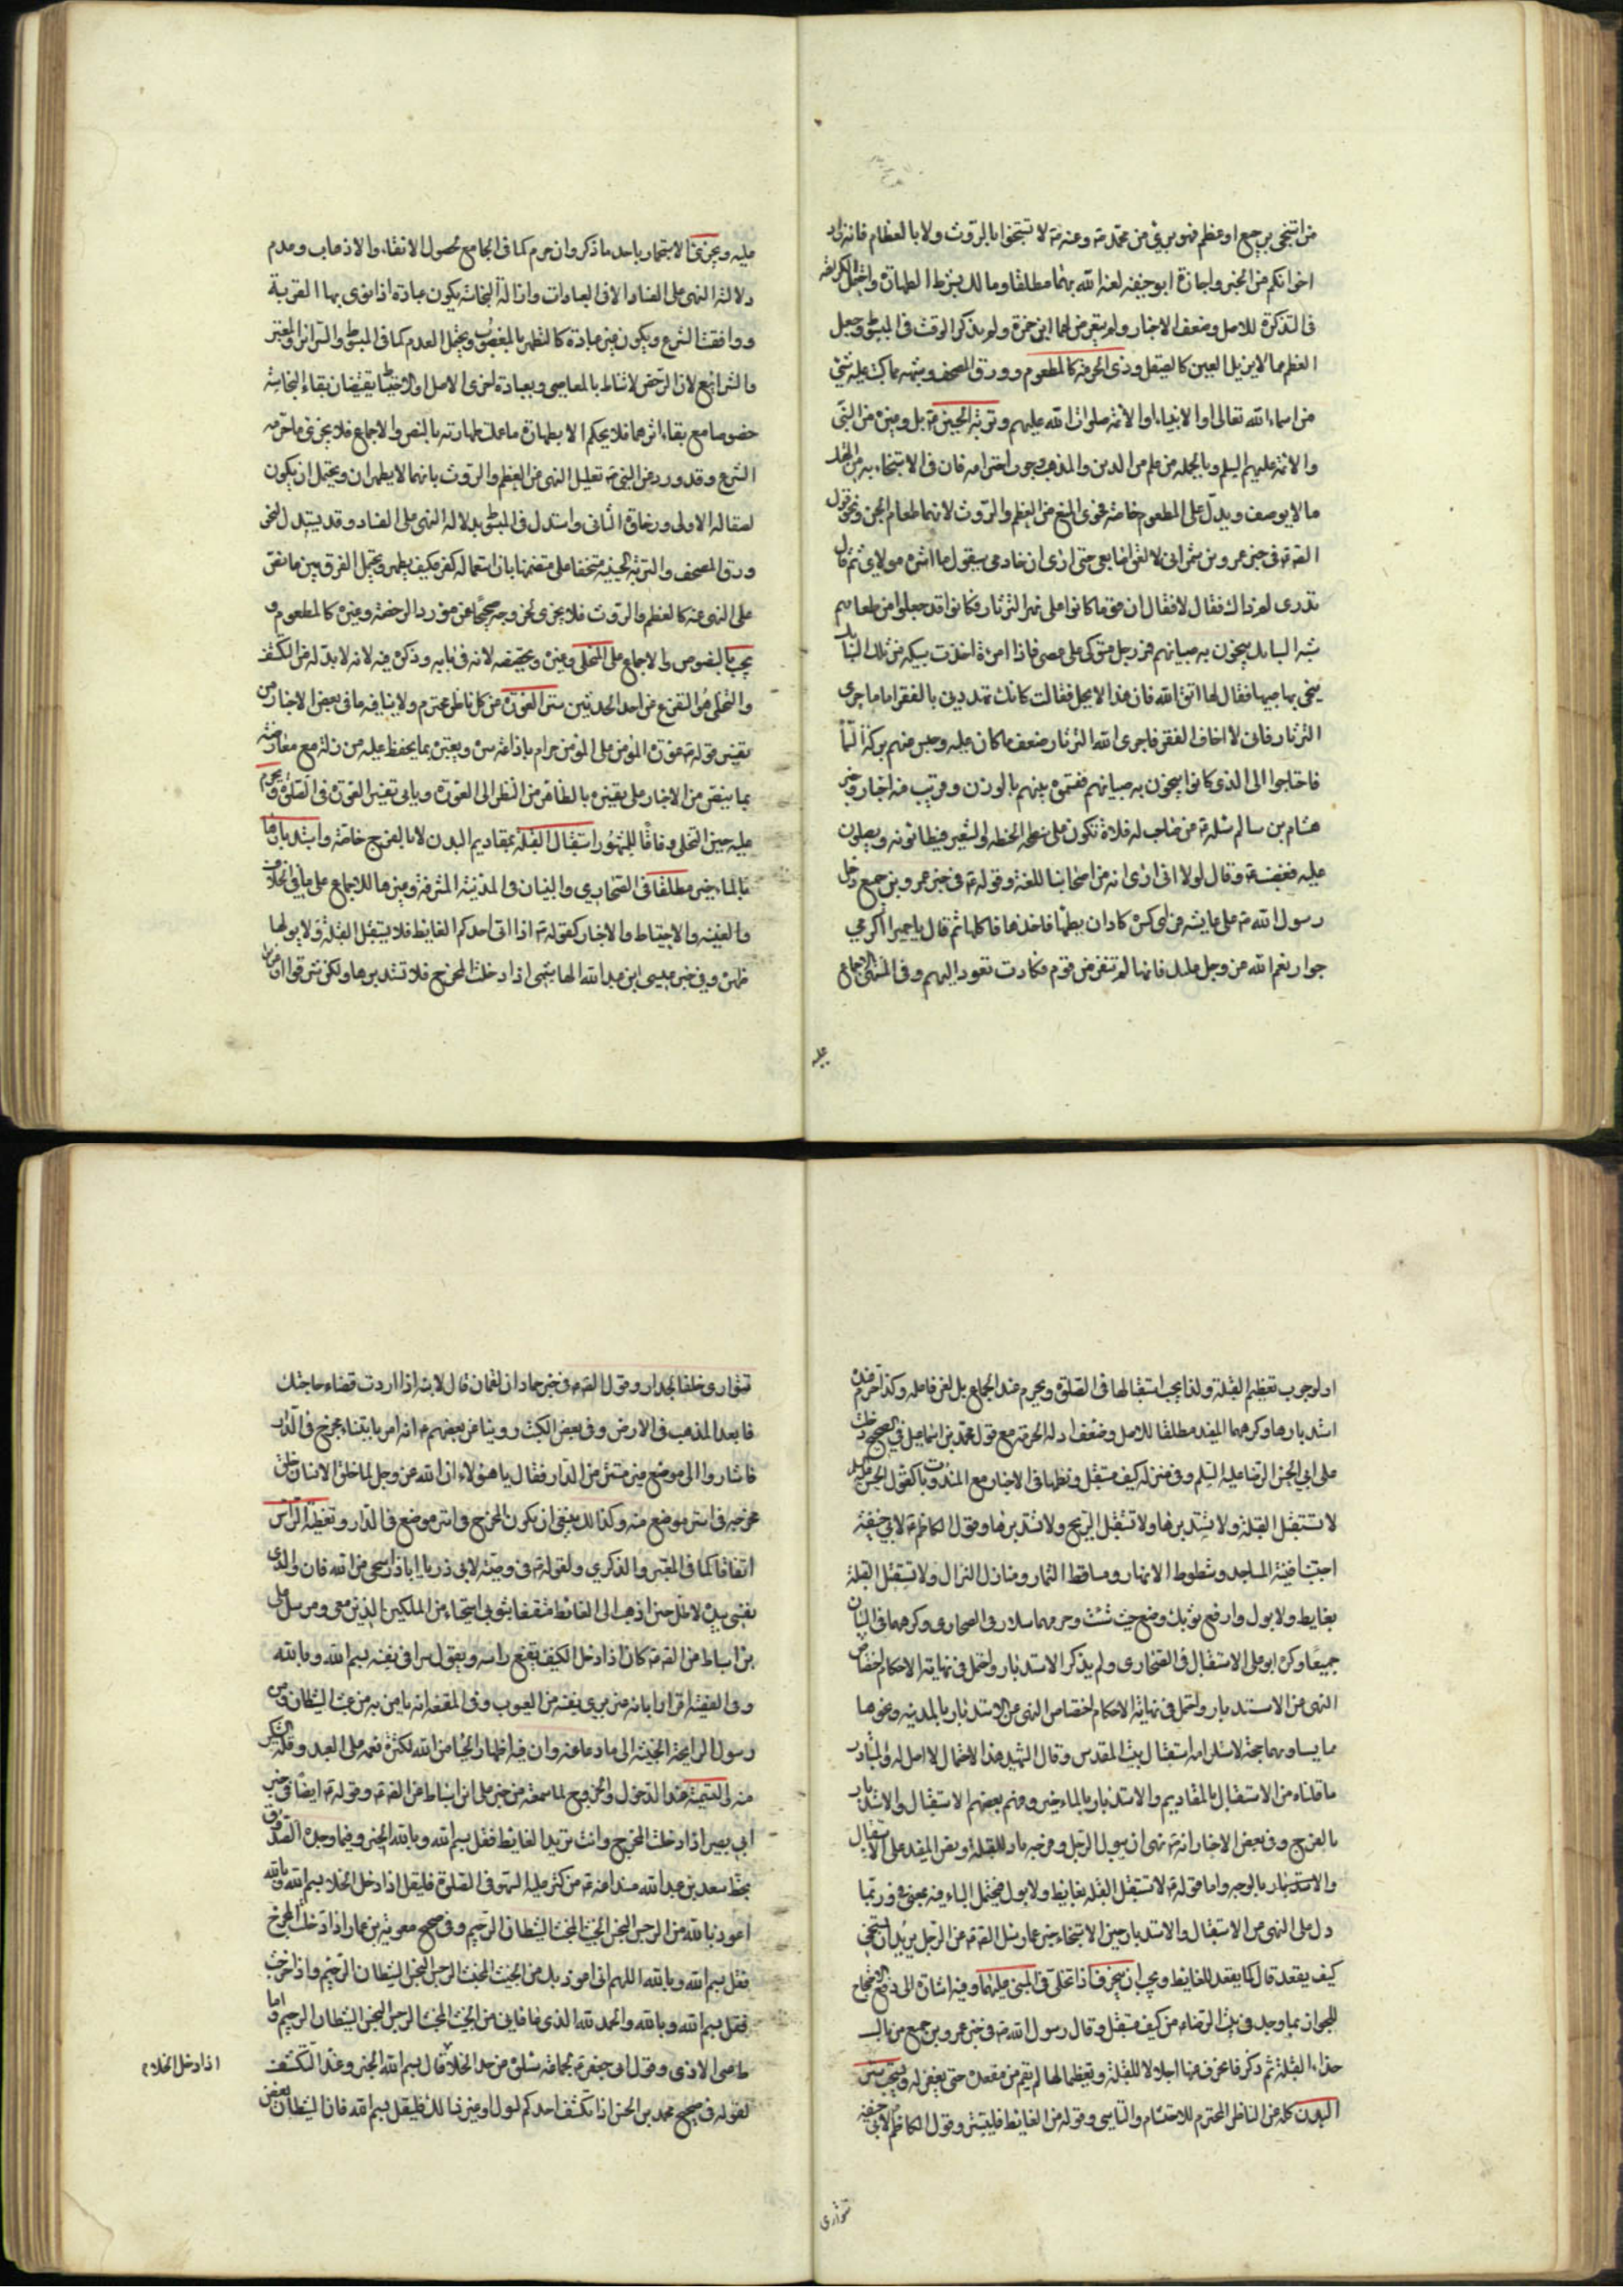 من استنجى برجيع او عظم فهو بريء من محمد ص وعنه ص لا تستنجوا بالروث ولا بالعظام فانه زاد
اخوانكم من الجن واجازة ابو حنيفة لعنه الله بهما مطلقا ومالك بشرط الطهارة واحتمل الكراهة
في التذكرة للاصل وضعف الاخبار ولم يتعرض لهما ابن حمزة ولم يذكر الروث في المبسوط وجعل
العظم مما لا يزيل العين كالصيقل وذي الحرمة كالمطعوم وورق المصحف وشبهه مما كتب عليه شيء
من اسماء الله تعالى او الانبياء او الائمة صلوات الله عليهم وتربة الحسين ع بل وغيره من النبي
والائمة عليهم السلم وبالجملة من علم من الدين والمذهب وجوب احترامه فان في الاستنجاء به من الهتك
ما لا يوصف ويدل على المطعوم خاصة فحوى المنع من العظم والروث لانهما طعام الجن ونحو قول
الصادق ع في خبر عمرو بن شمر اني لالعق اصابعي حتى ارى ان خادمي سيقول ما اشره مولاي ثم قال
تدري لم ذاك فقال لا فقال ان قوما كانوا على نهر الثرثار وكانوا قد جعلوا من طعامهم
شبه السبايك ينجون به صبيانهم فمر رجل متوكئ على عصى فاذا امرأة اخذت سبيكة من تلك السبايك
ينجي بها صبيها فقال لها اتقي الله فان هذا لا يحل فقالت كانك تهددني بالفقر اما ما جرى
الثرثار فاني لا اخاف الفقر فاجرى الله الثرثار ضعف ما كان عليه وحبس عنهم بركة السماء
فاحتاجوا الى الذي كانوا ينجون به صبيانهم فقسموه بينهم بالوزن وقريب منه اخبار وخبر
هشام بن سالم سئله ع من صاحب له فلاة تكون على سطحه الحنطة والشعير فيطأونه ويصلون
عليه فغضب ع وقال لولا اني ارى انه من اصحابنا للعنته وقوله ع في خبر عمرو بن جميع دخل
رسول الله ص على عايشة فراى كسرة كاد ان يطأها فاخذها فاكلها ثم قال يا حميرا اكرمي
جوار نعم الله عز وجل عليك فانها لم تنفر من قوم فكادت تعود اليهم وفي المنتهى الاجماع
عليه
عليه ويجزئ الاستجمار باحد ما ذكر وان حرم كما في الجامع لحصول الانقاء والاذهاب وعدم
دلالة النهي على الفساد الا في العبادات وازالة النجاسة يكون عبادة اذا نوى بها القربة
ووافقت الشرع ويكون غير عبادة كالتطهر بالمغصوب ويحتمل العدم كما في المبسوط والسرائر والمعتبر
والشرايع لان الرخص لا تناط بالمعاصي وبعبارة اخرى الاصل والاحتياط يقتضيان بقاء النجاسة
خصوصا مع بقاء اثرها فلا يحكم الا بطهارة ما علمت طهارته بالنص والاجماع فلا يجزئ ما حرمه
الشرع وقد ورد عن النبي ص تعليل النهي عن العظم والروث بانهما لا يطهران ويحتمل ان يكون
لصقالة الاولى ورخاوة الثاني واستدل في المبسوط بدلالة النهي على الفساد وقد يستدل لنحو
ورق المصحف والتربة الحسينية مستخفا على متضمنها بان استعماله كفر فكيف يطهر ويحتمل الفرق بين ما نص
على النهي عنه كالعظم والروث فلا يجزي لخروجه صريحا عن مورد الرخصة وغيره كالمطعوم و
يجب بالنصوص والاجماع على المتخلي وغيره وتخصيصه لانه في بابه وذكره فيه لانه لا بد له من الكشف
والتخلي هو التفرغ من احد الحدثين ستر العورة عن كل ناظر محترم ولا ينافيه ما في بعض الاخبار من
تفسير قوله ع عورة المؤمن على المؤمن حرام باذاعة سره وبغيره بما يحفظ عليه من زلة مع معارضته
بما ينص من الاخبار على تفسيره بالظاهر من النظر الى العورة وياتي تفسير العورة في الصلوة ويحرم
عليه حين التخلي وفاقا للمشهور استقبال القبلة بمقاديم البدن لا بالفرج خاصة واستدبارها
بالمآخير مطلقا في الصحاري والبنيان في المدينة المشرفة وغيرها للاجماع على ما في الخلاف
والغنية والاحتياط والاخبار كقوله ع اذا اتى احدكم الغايط فلا يستقبل القبلة ولا يولها
ظهره وفي خبر عيسى ابن عبد الله الهاشمي اذا دخلت المخرج فلا تستدبرها ولكن شرقوا او غربوا
او لوجوب تعظيم القبلة ولذا يجب استقبالها في الصلوة ويحرم عند الجماع بل لعن فاعله وكذا حرم عنده
استدبارها وكرههما المفيد مطلقا للاصل وضعف ادلة الحرمة مع قول محمد بن اسماعيل في الصحيح دخلت
على ابي الحسن الرضا عليه السلم وفي منزله كنيف مستقبل ونظمها في الاخبار مع المندوبات كقول الحسن عليه السلم
لا تستقبل القبلة ولا تستدبرها ولا تستقبل الريح ولا تستدبرها وقول الكاظم ع لابي حنيفة
اجتنب افنية المساجد وشطوط الانهار ومساقط الثمار ومنازل النزال ولا تستقبل القبلة
بغايط ولا بول وارفع ثوبك وضع حيث شئت وحرمهما سلار في الصحاري وكرههما في البنيان
جميعا وكره ابو علي الاستقبال في الصحاري ولم يذكر الاستدبار واحتمل في نهاية الاحكام اختصاص
النهي عن الاستدبار واحتمل في نهاية الاحكام اختصاص النهي عن الاستدبار بالمدينة ونحوها
مما يساويهما جهة لاستلزامه استقبال بيت المقدس وقال الشهيد هذا لاحتمال لا اصل له والمتبادر
ما قلناه من الاستقبال بالمقاديم والاستدبار بالمآخير وفهم بعضهم الاستقبال والاستدبار
بالفرج وفي بعض الاخبار انه ص نهى ان يبول الرجل وفرجه باد للقبلة ونص المفيد على الاستقبال
والاستدبار بالوجه واما قوله ع لا تستقبل القبلة بغايط ولا بول فيحتمل الباء فيه بمعنى في وربما
دل على النهي عن الاستقبال والاستدبار حين الاستنجاء خبر عمار سئل الصادق ع عن الرجل يريد ان يستنجي
كيف يقعد قال كما يقعد للغايط ويجب ان ينحرف اذا تخلى في المبني عليهما وفيه اشارة الى دفع الاحتجاج
للجواز بما وجد في بيت الرضا ع من كنيف مستقبل وقال رسول الله ص في خبر عمرو بن جميع من بال
حذاء القبلة ثم ذكر فانحرف عنها اجلالا للقبلة وتعظيما لها لم يقم من مقعده حتى يغفر له ويستحب ستر
البدن كله عن الناظر المحترم للاحتشام والتاسي وقوله من الغايط فليستتر وقول الكاظم ع لابي حنيفة
تتوارى
تتوارى خلف الجدار وقول الصادق ع في خبر حماد ان لقمان قال لابنه اذا اردت قضاء حاجتك
فابعد المذهب في الارض وفي بعض الكتب روينا عن بعضهم ع انه امر بابتناء مخرج في الدار
فاشاروا الى موضع غير مستتر من الدار فقال يا هؤلاء ان الله عز وجل لما خلق الانسان خلق
مخرجه في استر موضع منه وكذلك ينبغي ان يكون المخرج في استر موضع في الدار وتغطية الراس
اتفاقا كما في المعتبر والذكرى ولقوله ص في وصيته لابي ذر يا اباذر استحي من الله فاني والذي
نفسي بيده لاظل حين اذهب الى الغائط متقنعا بثوبي استحياء من الملكين الذين معي ومرسل علي
بن اسباط عن الصادق ع كان اذا دخل الكنيف يقنع راسه ويقول سرا في نفسه بسم الله وبالله
وفي الفقيه اقرارا بانه غير مبرئ نفسه من العيوب وفي المقنعة انه يامن به من عبث الشيطان ومن
وصول الرايحة الخبيثة الى دماغه وان فيه اظهار الحياء من الله لكثرة نعمه على العبد وقلة الشكر
منه والتسمية عند الدخول والخروج لما سمعته من خبر علي ابن اسباط عن الصادق ع وقوله ع ايضا في خبر
ابي بصير اذا دخلت المخرج وانت تريد الغايط فقل بسم الله وبالله الخبر وفيما وجده الصدوق
بخط سعد بن عبد الله مسندا عنه ع من كثر عليه السهو في الصلوة فليقل اذا دخل الخلاء بسم الله وبالله
اعوذ بالله من الرجس النجس الخبيث المخبث الشيطان الرجيم وفي صحيح معوية بن عمار اذا دخلت المخرج
فقل بسم الله وبالله اللهم اني اعوذ بك من الخبيث المخبث الرجس النجس الشيطان الرجيم واذا خرجت
فقل بسم الله وبالله والحمد لله الذي عافاني من الخبيث المخبث الرجس النجس الشيطان الرجيم واما
ط عني الاذى وقول ابي جعفر ع لجماعة سئلوه عن حد الخلاء قال بسم الله الخبر وعند التكشف
اذا دخل الخلاء
لقوله في صحيح محمد بن الحسن اذا تكشف احدكم لبول او غير ذلك فليقل بسم الله فان الشيطان يغض